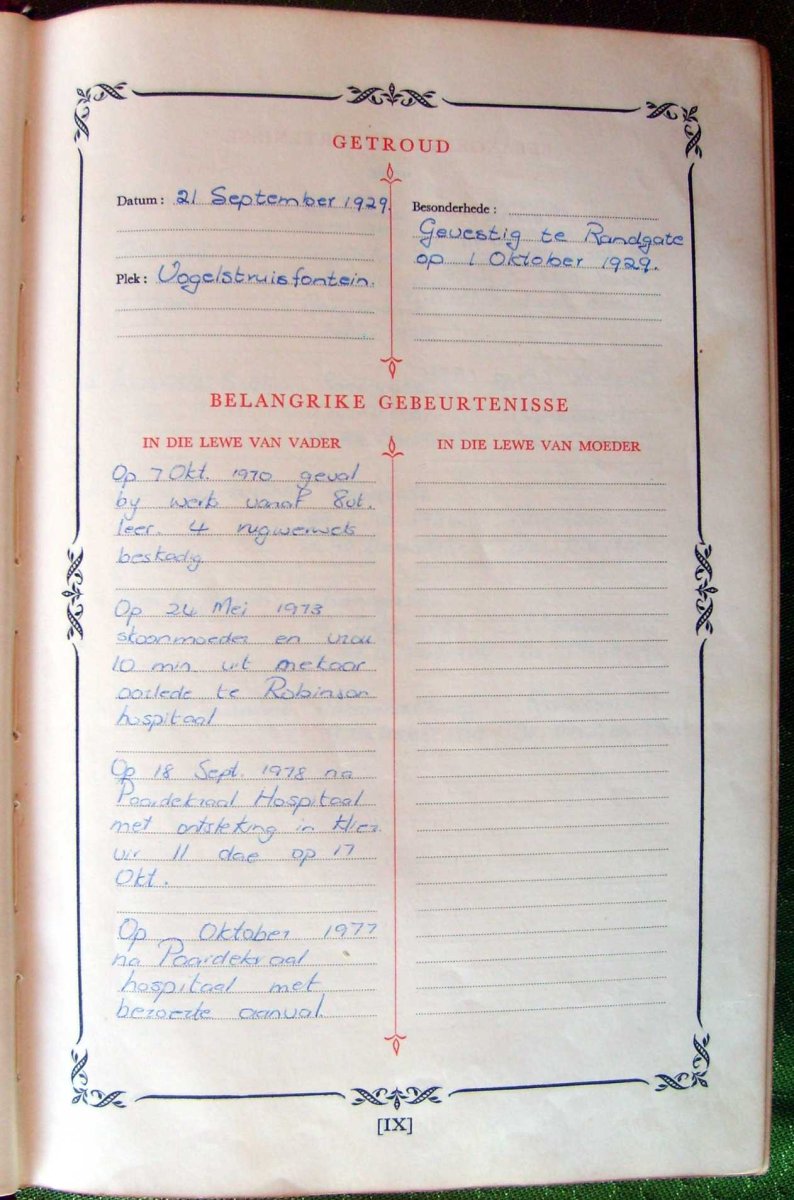 GETROUD
Datum : 21 September 1929.
Plek : Vogelstruisfontein.
Besonderhede :
Gevestig te Randgate
op 1 Oktober 1929.
BELANGRIKE GEBEURTENISSE
IN DIE LEWE VAN VADER
Op 7 Okt. 1970 geval
by werk vanaf 8vt.
leer. 4 rugwerwels
beskadig
Op 24 Mei 1973
skoonmoeder en vrou
10 min uit mekaar
oorlede te Robinson
hospitaal
Op 18 Sept. 1978 na
Paardekraal Hospitaal
met ontsteking in klier
vir 11 dae op 17
Okt.
Op Oktober 1977
na Paardekraal
hospitaal met
beroerte aanval.
IN DIE LEWE VAN MOEDER
[IX]